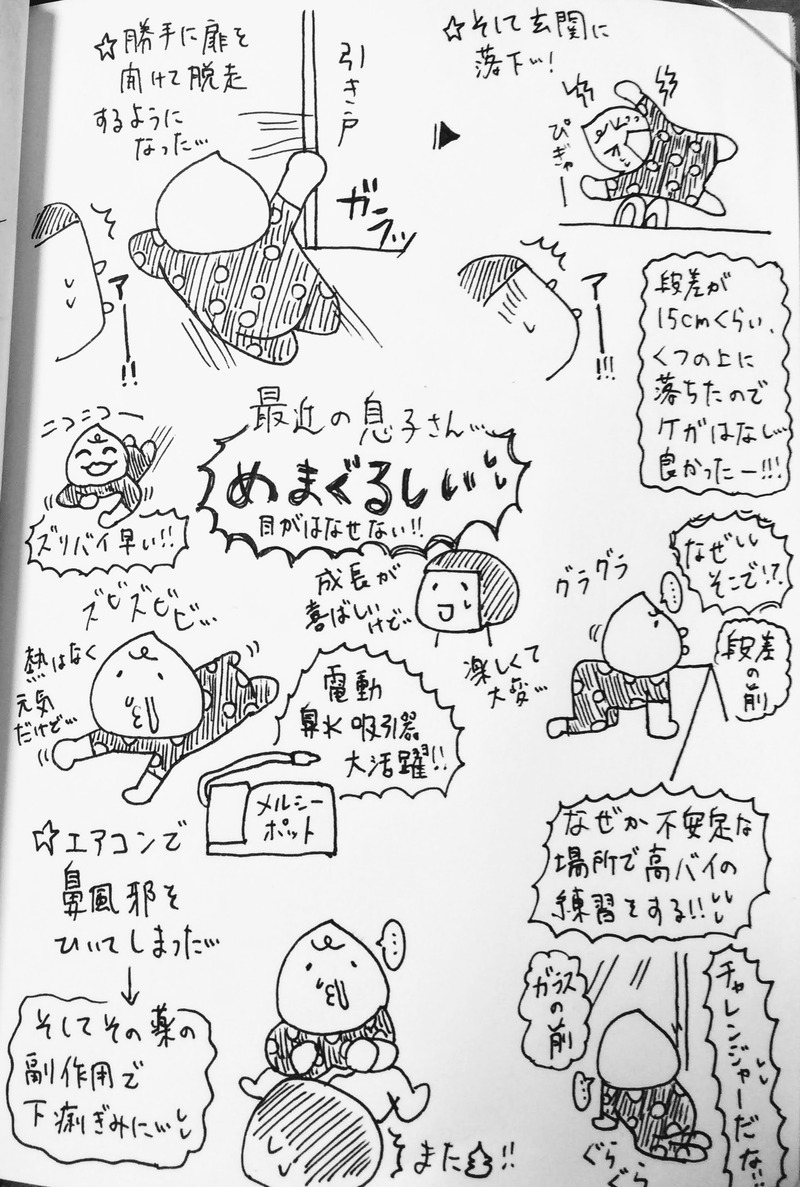 ☆勝手に扉を
開けて脱走
するように
なった…
引き戸
ガラッ
アーーー!!
☆そして玄関に
落下ッ!
ぴぎゃー
アーーー!!!
段差が
15cmくらい、
くつの上に
落ちたので
ケガはなし…
良かったー!!!
最近の息子さん…
めまぐるしいい
目がはなせない!!
ニコニコー
ズリバイ早い!!
成長が
喜ばしいけど…
楽しくて
大変…
グラグラ
なぜ
そこで!?
…
段差
の
前
なぜか不安定な
場所で高バイの
練習をする!!
ズビズビビ…
熱はなく
元気
だけど…
電動
鼻水吸引器
大活躍!!
メルシー
ポット
☆エアコンで
鼻風邪を
ひいてしまった…
↓
そしてその薬の
副作用で
下痢ぎみに…
…
また!!
ガラス
の
前
チャレンジャーだな…
…
ぐら
ぐら